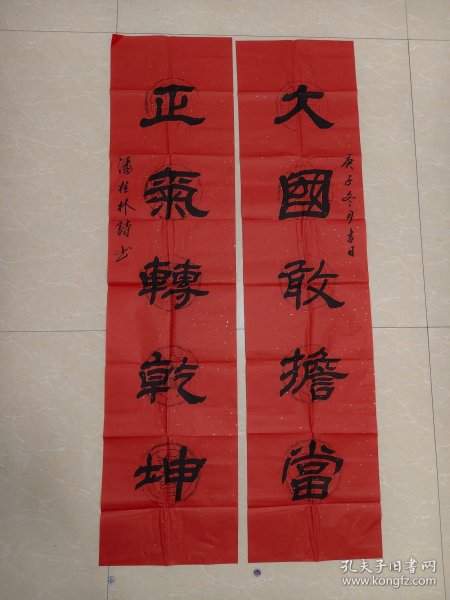 大國敢擔當
庚子冬月吉日
正氣轉乾坤
潘桂林詩书
孔夫子旧书网
www.kongfz.com